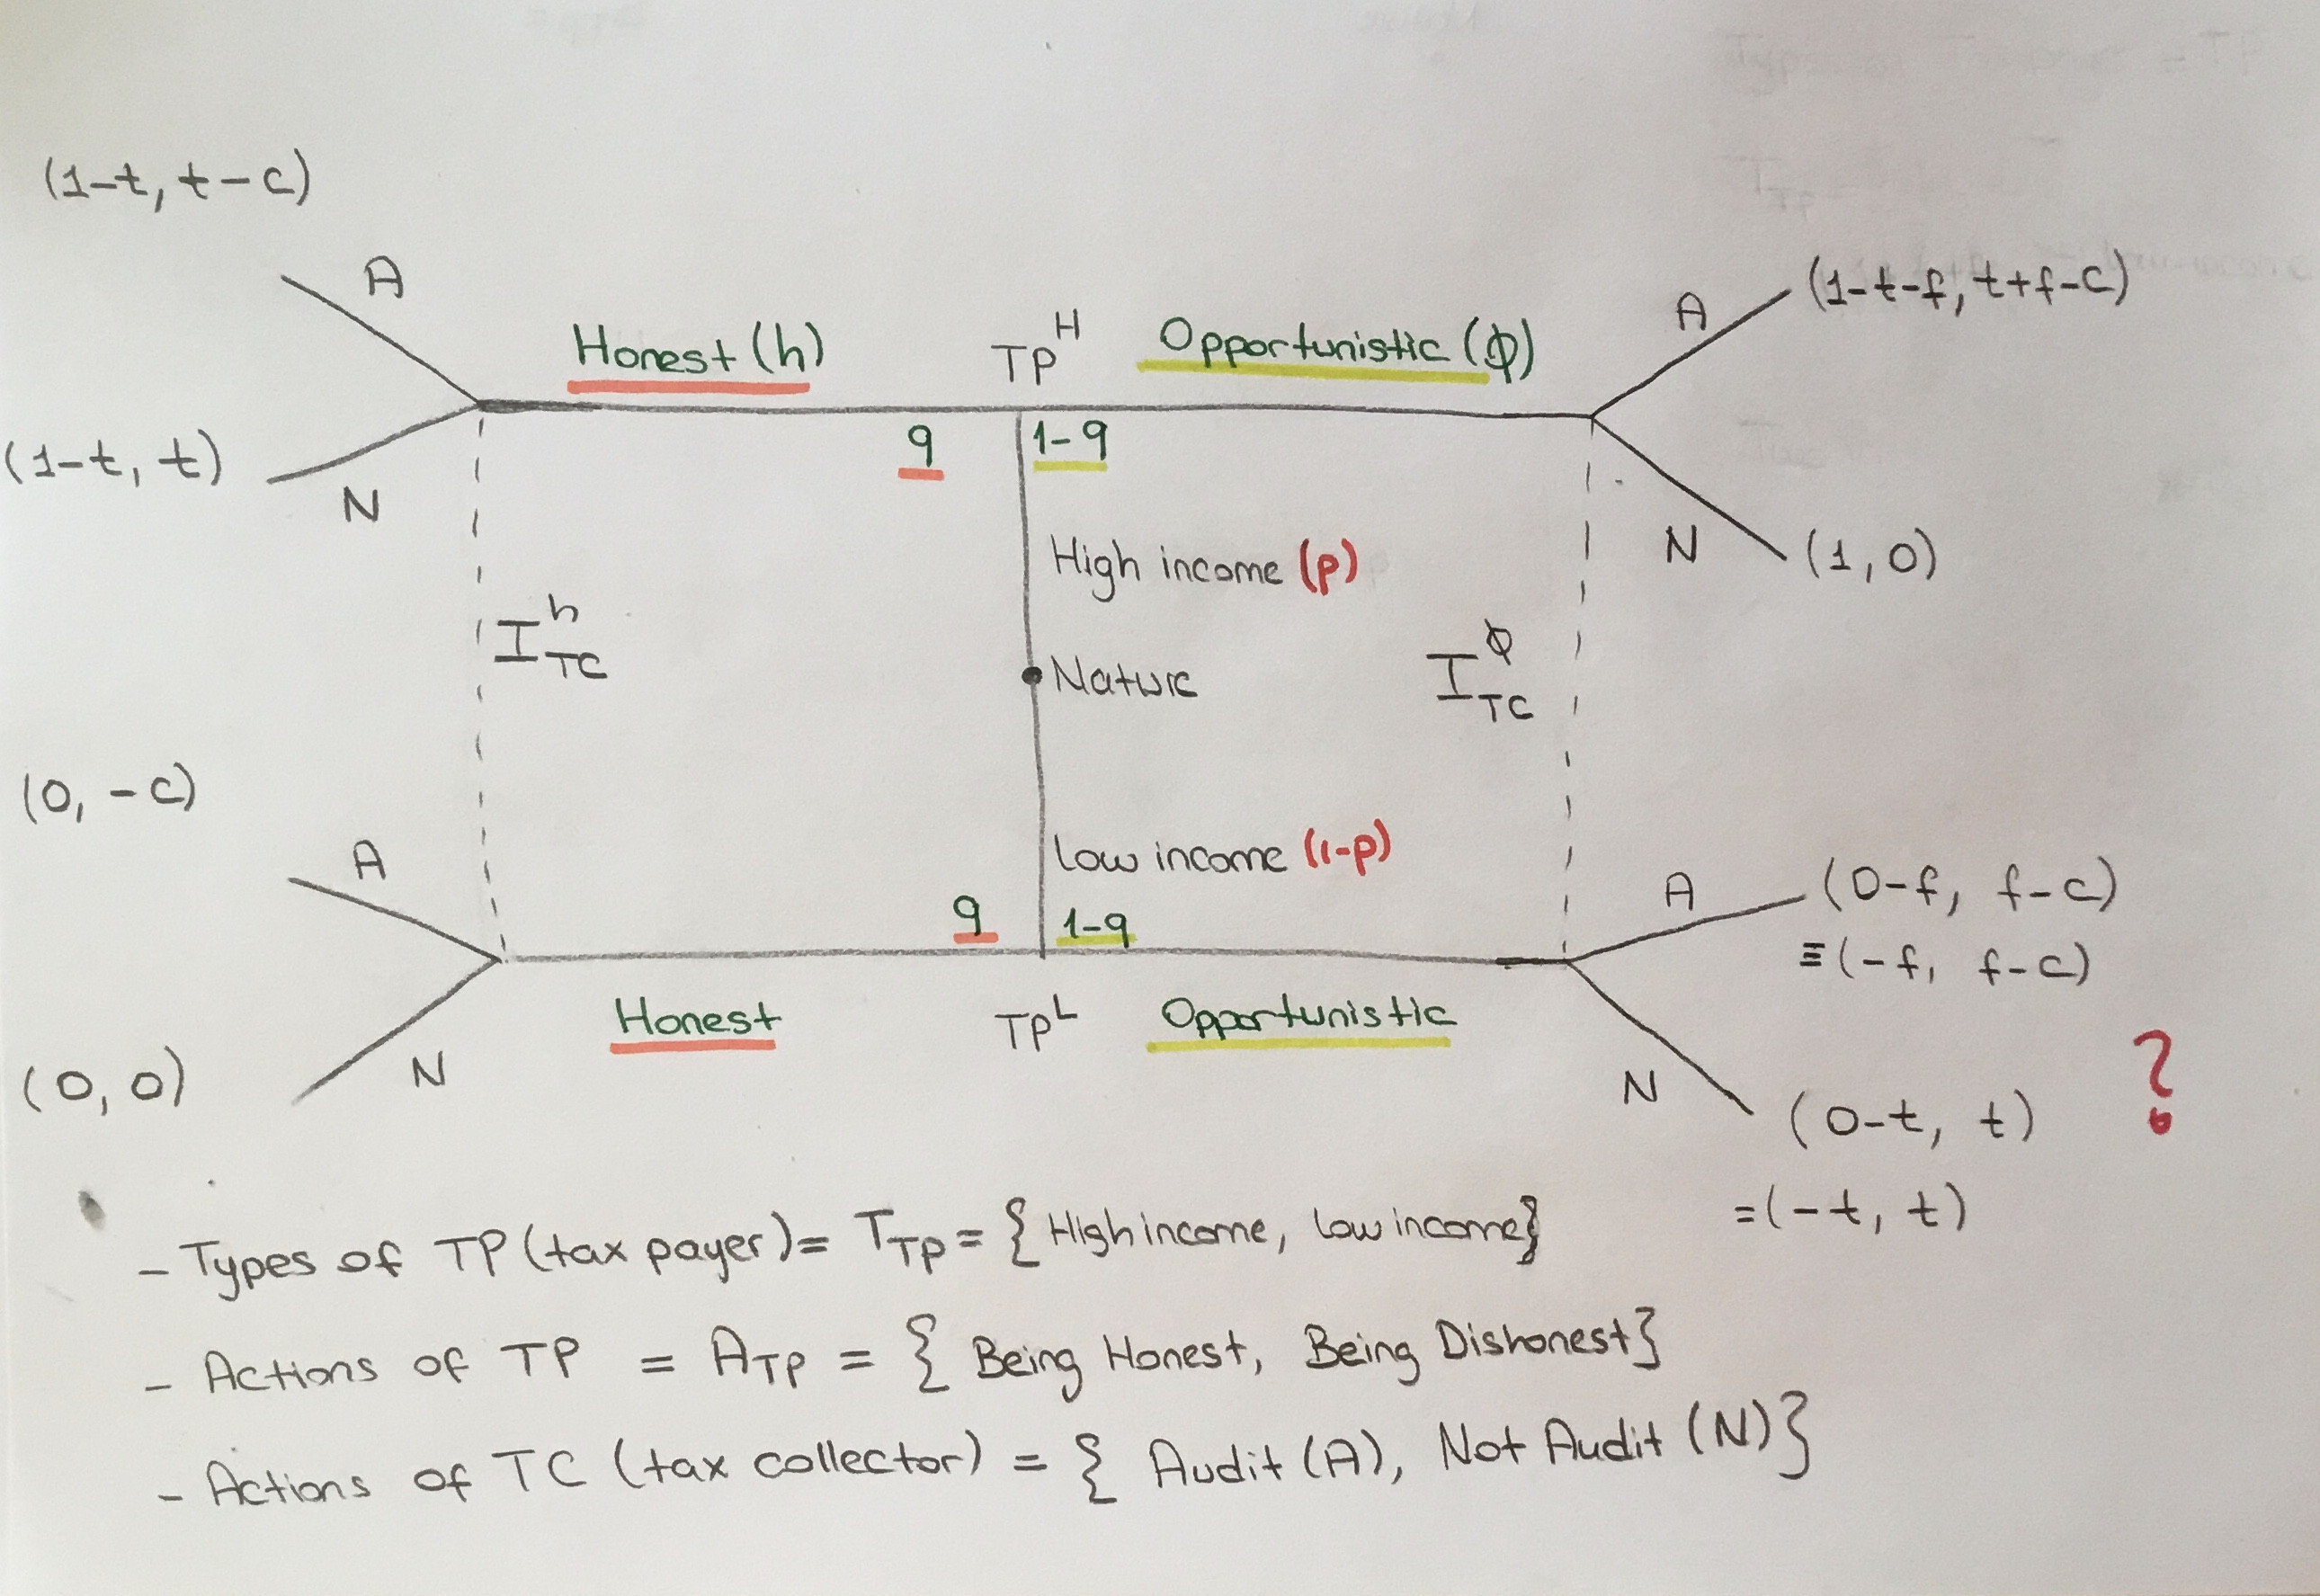 (1-t, t-c)
A
Honest (h)
TP^H
Opportunistic (ϕ)
A
(1-t-f, t+f-c)
(1-t, t)
N
q
1-q
N
(1, 0)
High income (p)
I_TC^h
Nature
I_TC^ϕ
(0, -c)
A
Low income (1-p)
A
(0-f, f-c)
≡(-f, f-c)
q
1-q
Honest
TP^L
Opportunistic
(0, 0)
N
N
(0-t, t)
?
=(-t, t)
- Types of TP (tax payer) = T_TP = { High income, low income}
- Actions of TP = A_TP = { Being Honest, Being Dishonest}
- Actions of TC (tax collector) = { Audit (A), Not Audit (N)}